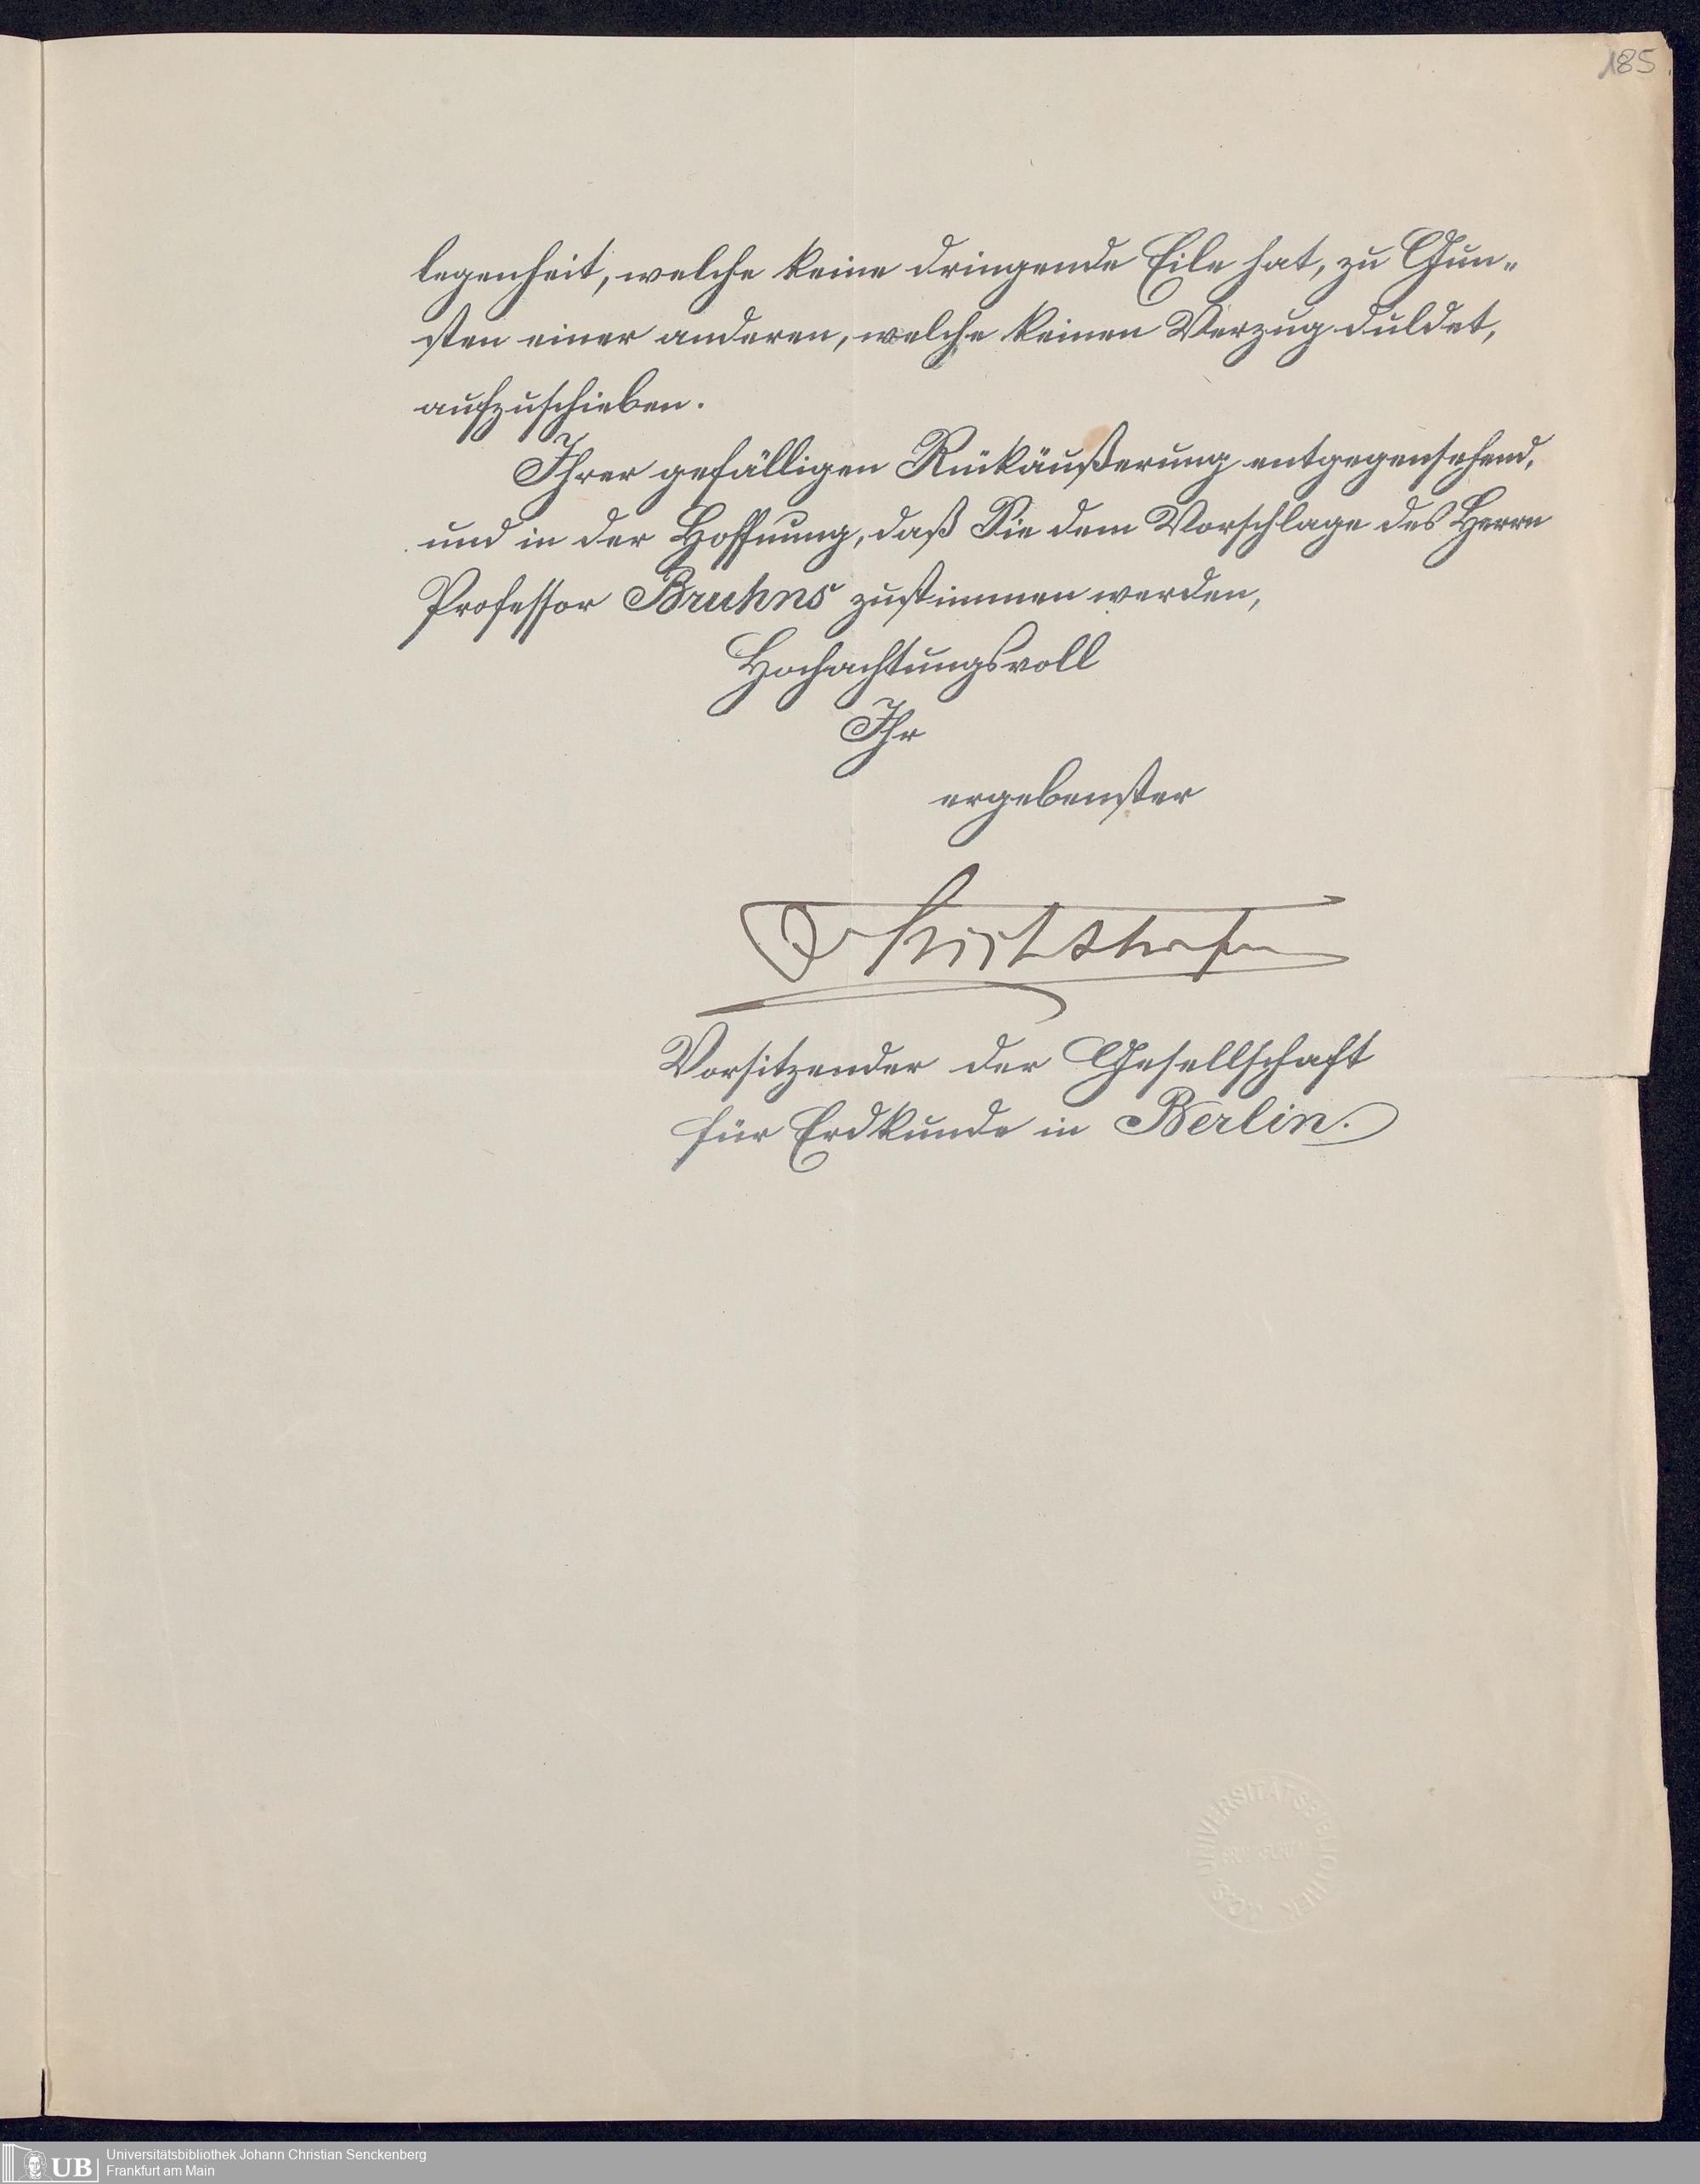 185.
legenheit, welche keine dringende Eile hat, zu Gun-
sten einer anderen, welche keinen Verzug duldet,
aufzuschieben.
Ihrer gefälligen Rückäußerung entgegensehend,
und in der Hoffnung, daß Sie dem Vorschlage des Herrn
Professor Bruhns zustimmen werden,
Hochachtungsvoll
Ihr
ergebenster
Richthofen
Vorsitzender der Gesellschaft
für Erdkunde in Berlin.
UNIVERSITÄTSBIBLIOTHEK
UB
Universitätsbibliothek Johann Christian Senckenberg
Frankfurt am Main